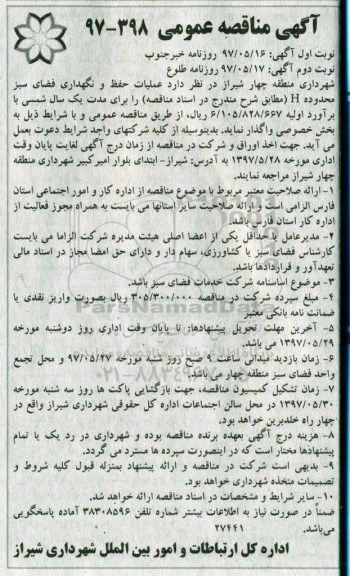 آگهی مناقصه عمومی ۳۹۸-۹۷
نوبت اول آگهی: ۹۷/۰۵/۱۶ روزنامه خبرجنوب
نوبت دوم آگهی: ۹۷/۰۵/۱۷ روزنامه طلوع
شهرداری منطقه چهار شیراز در نظر دارد عملیات حفظ و نگهداری فضای سبز
محدوده H (مطابق شرح مندرج در اسناد مناقصه) را برای مدت یک سال شمسی با
برآورد اولیه ۶/۱۰۵/۸۲۸/۶۶۷ ریال، از طریق مناقصه عمومی و با شرایط ذیل به
بخش خصوصی واگذار نماید. بدینوسیله از کلیه شرکتهای واجد شرایط دعوت بعمل
می آید. جهت اخذ اوراق و شرکت در مناقصه از زمان درج آگهی لغایت پایان وقت
اداری مورخه ۱۳۹۷/۵/۲۸ به آدرس: شیراز- ابتدای بلوار امیرکبیر شهرداری منطقه
چهار شیراز مراجعه نمایند.
۱- ارائه صلاحیت معتبر مربوط با موضوع مناقصه از اداره کار و امور اجتماعی استان
فارس الزامی است و ارائه صلاحیت سایر استانها می بایست به همراه مجوز فعالیت از
اداره کار استان فارس باشد.
۲- مدیرعامل یا حداقل یکی از اعضا اصلی هیئت مدیره شرکت الزاما می بایست
کارشناس فضای سبز یا کشاورزی، سهام دار و دارای حق امضا مجاز در اسناد مالی
تعهدآور و قراردادها باشد.
۳- موضوع اساسنامه شرکت خدمات فضای سبز باشد.
۴- مبلغ سپرده شرکت در مناقصه ۳۰۵/۳۰۰/۰۰۰ ریال بصورت واریز نقدی یا
ضمانت نامه بانکی معتبر
۵- آخرین مهلت تحویل پیشنهادها: تا پایان وقت اداری روز دوشنبه مورخه
۱۳۹۷/۰۵/۲۹ می باشد.
۶- زمان بازدید میدانی ساعت ۹ صبح روز شنبه مورخه ۹۷/۰۵/۲۷ و محل تجمع
واحد فضای سبز منطقه چهار می باشد.
۷- زمان تشکیل کمیسیون مناقصه، جهت بازگشایی پاکت ها روز سه شنبه مورخه
۱۳۹۷/۰۵/۳۰ در محل سالن اجتماعات اداره کل حقوقی شهرداری شیراز واقع در
چهار راه خلدبرین خواهد بود.
۸- هزینه درج آگهی بعهده برنده مناقصه بوده و شهرداری در رد یک یا تمام
پیشنهادها مختار است که در اینصورت سپرده ها مسترد می گردد.
۹- بدیهی است شرکت در مناقصه و ارائه پیشنهاد بمنزله قبول کلیه شروط و
تصمیمات متخذه شهرداری خواهد بود.
۱۰- سایر شرایط و مشخصات در اسناد مناقصه ارائه خواهد شد.
ضمناً در صورت نیاز به اطلاعات بیشتر شماره تلفن ۳۸۳۰۸۵۹۶ آماده پاسخگویی
می‌باشد. ۲۷۴۴۱
اداره کل ارتباطات و امور بین الملل شهرداری شیراز